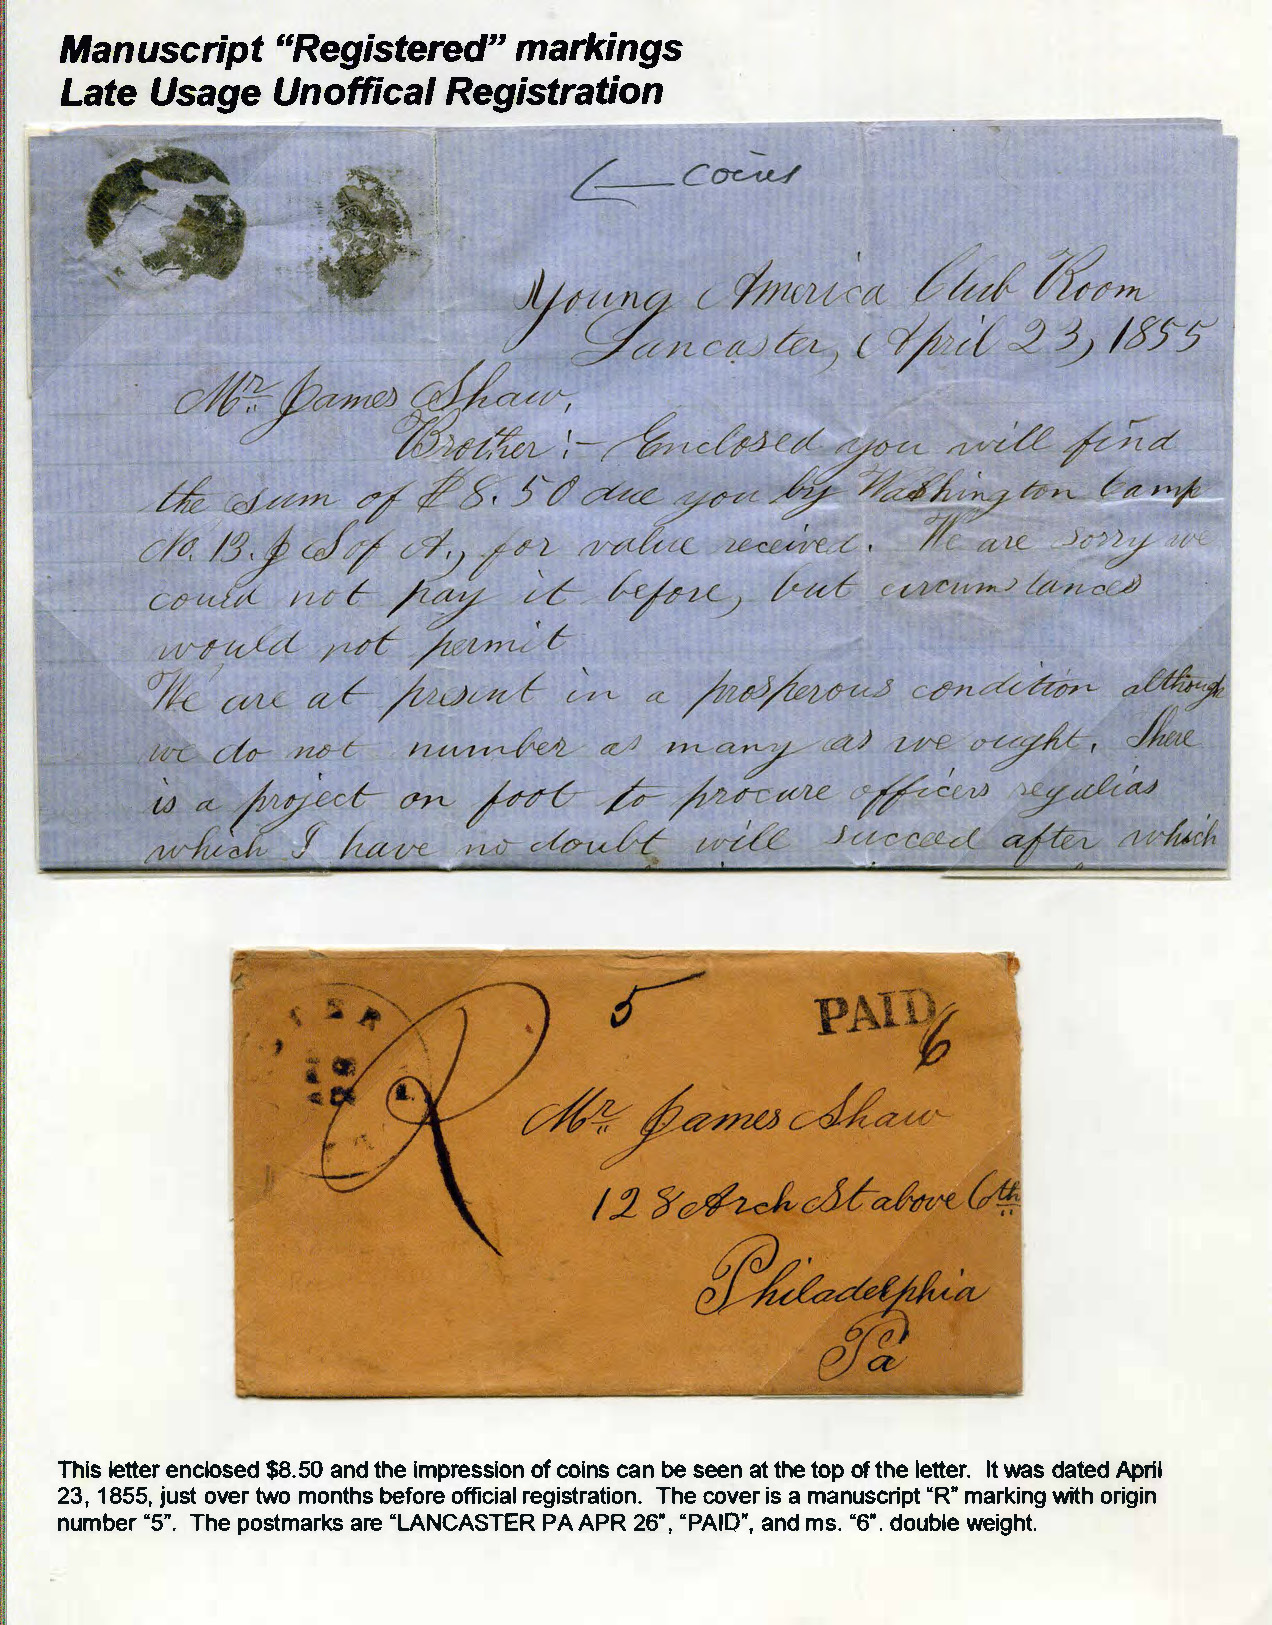 Manuscript “Registered” markings
Late Usage Unoffical Registration
coins
Young America Club Room
Lancaster, April 23, 1855
Mr. James Shaw,
Brother:- Enclosed you will find
the sum of $8.50 due you by Washington Camp
No. 13. J S of A., for value received. We are sorry we
could not pay it before, but circumstances
would not permit
We are at present in a prosperous condition although
we do not number as many as we ought. There
is a project on foot to procure officers regalias
which I have no doubt will succeed after which
R 5 PAID 6
Mr. James Shaw
128 Arch St above 6th
Philadelphia
Pa
This letter enclosed $8.50 and the impression of coins can be seen at the top of the letter. It was dated April
23, 1855, just over two months before official registration. The cover is a manuscript “R” marking with origin
number “5”. The postmarks are “LANCASTER PA APR 26”, “PAID”, and ms. “6”. double weight.